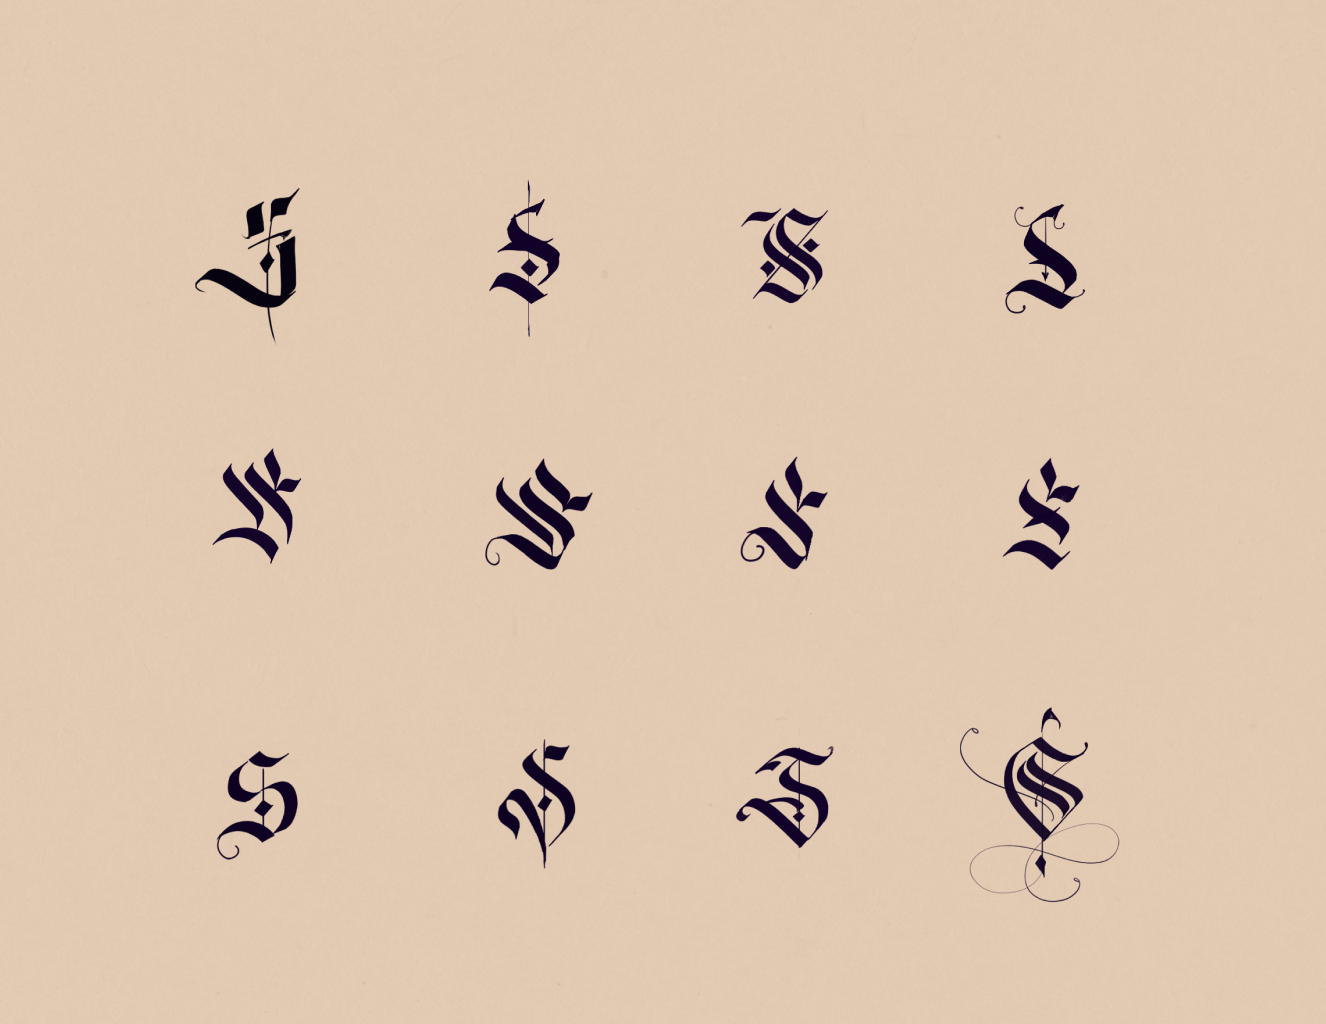 S S S S
S S S S
S S S S